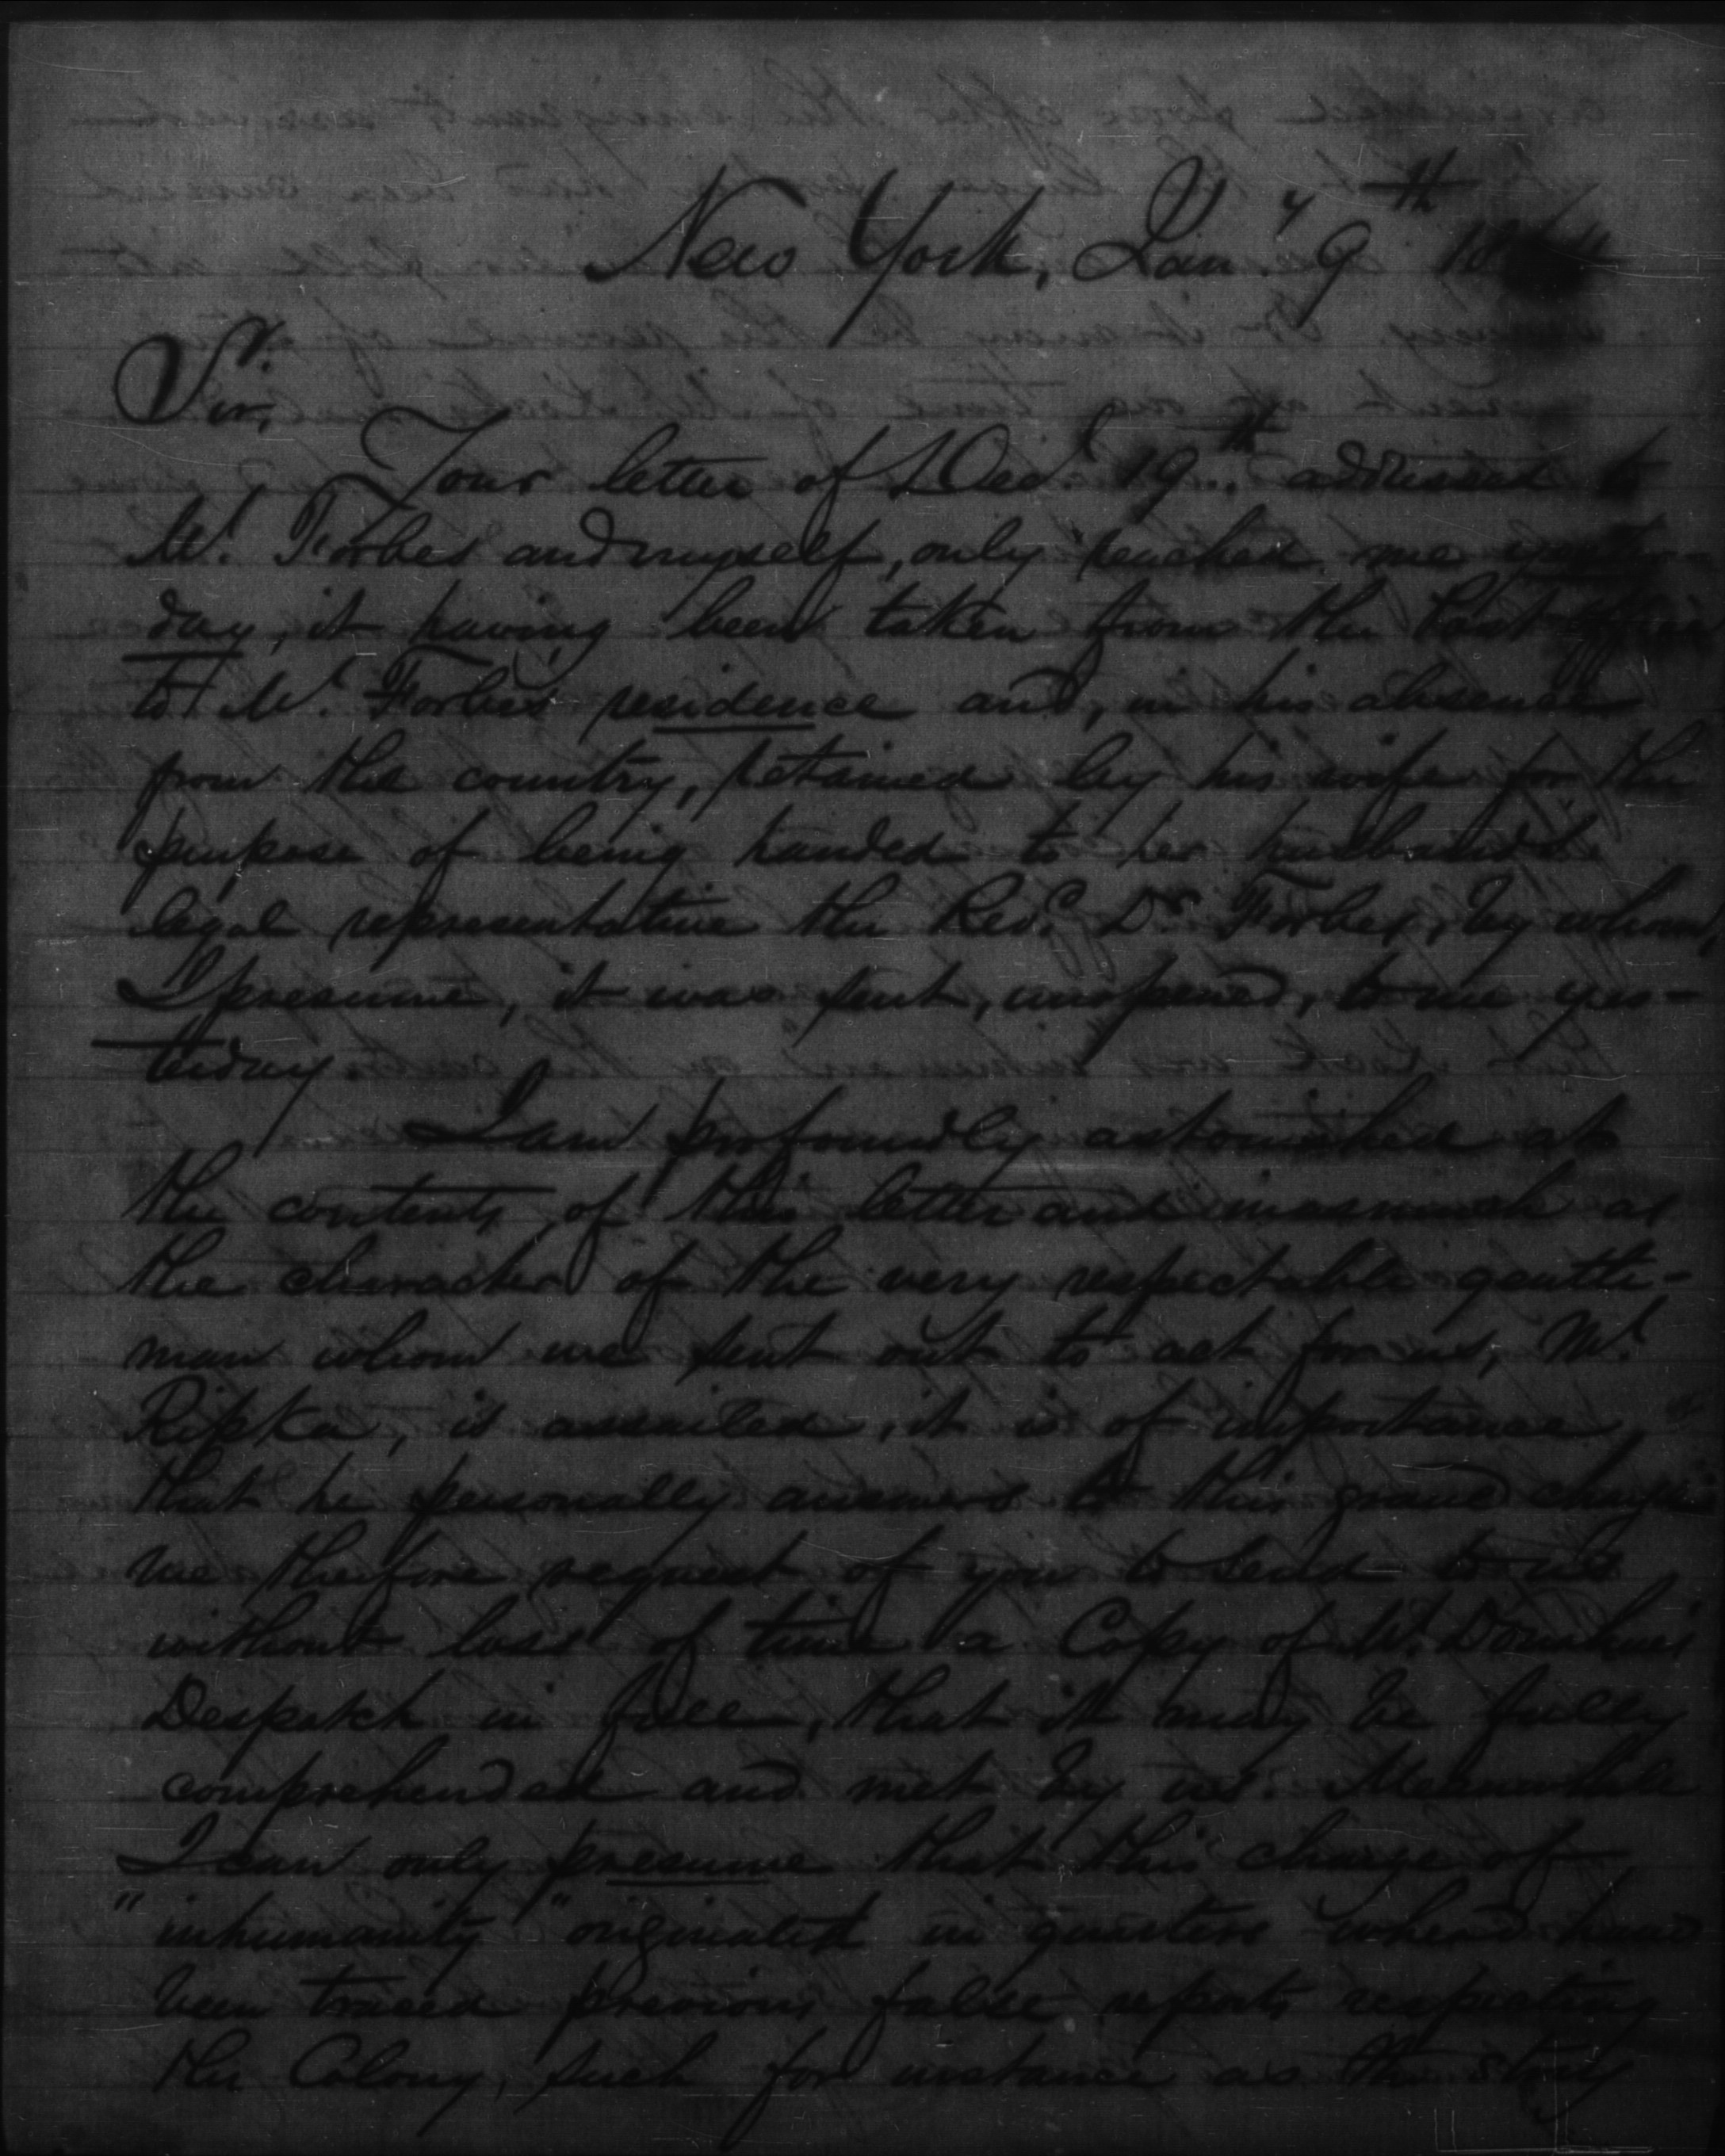 New York, Jany. 9th 18
Sir,
Your letter of Decr. 19th addressed to
Mr. Forbes and myself, only reached me yester-
day, it having been taken from the Post Office
to Mr. Forbes' residence and, in his absence
from the country, retained by his wife for the
purpose of being handed to her husband's
legal representative the Revd. Dr. Forbes, by whom,
I presume, it was sent, unopened, to me yes-
terday.
I am profoundly astonished at
the contents of this letter and inasmuch as
the character of the very respectable gentle-
man whom we sent out to act for us, Mr.
Ripka, is assailed, it is of importance
that he personally answers to this grave charge
we therefore request of you to send to us
without loss of time a Copy of Mr.
Despatch in full, that it may be fully
comprehended and met by us. Meanwhile
I can only presume that this charge of
"inhumanity" originated in quarters where have
been traced previous false reports respecting
the Colony, such for instance as the story